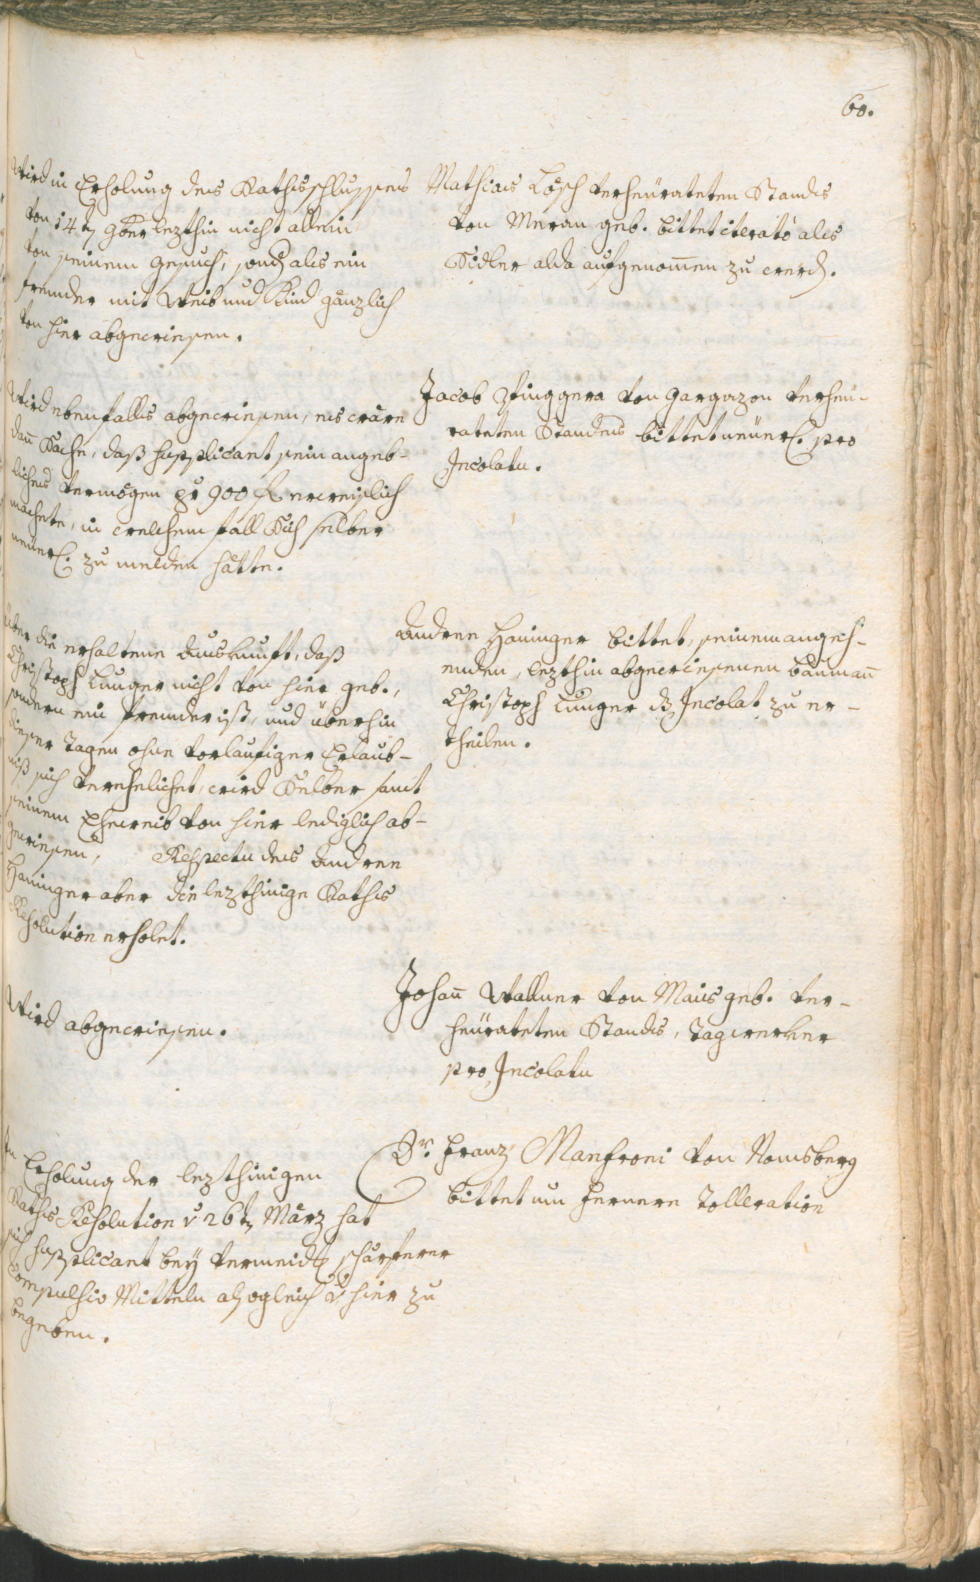 60.
Wird in Erholung des Rathsschlusses
von 14t 9ber lezthin nicht allein
von seinem gesuch, sond als ein
fremder mit Weib und Kind gänzlich
von hier abgewisen.
Mathias Lösch verheürateten Stands
von Meran geb. bittet iterato als
Sidler alda aufgenommen zu werd.
Wird ebenfalls abgewisen, es wäre
dan Sache, daß supplicant sein angeb-
liches Vermögen pr 900 fl erweislich
machete, in welchem fall Sich selber
neüerl. zu melden hätte.
Jacob Zwinggera von Gargazon verheü-
rateten Standes bittet neüerl. pro
Incolatu.
über die erhaltene Auskunft, daß
Christoph Lunger nicht von hier geb.,
sondern ein fremder ist, und überhin
diser Tagen ohne vorläufiger Erlaub-
niß sich verehelichet, wird Selber samt
seinem Eheweib von hier lediglich ab-
gewisen, Respectu des Andree
Haninger aber die lezthinige Raths
Resolution erholet.
Andree Haninger bittet, seinem angeh-
enden, lezthin abgewisenen baumañ
Christoph Lunger dz Incolat zu er-
theilen.
Wird abgewisen.
Johañ Wallner von Mais geb. ver-
heürateten Stands, Tagwerker
pro Incolatu
In Erholung der lezthinigen
Raths Resolution v 26t März hat
sich supplicant bey vermeid schärferer
Compulsiv Mitteln alsogleich v hier zu
begeben.
Dr. Franz Manfroni von Nonsberg
bittet um fernere Tolleration